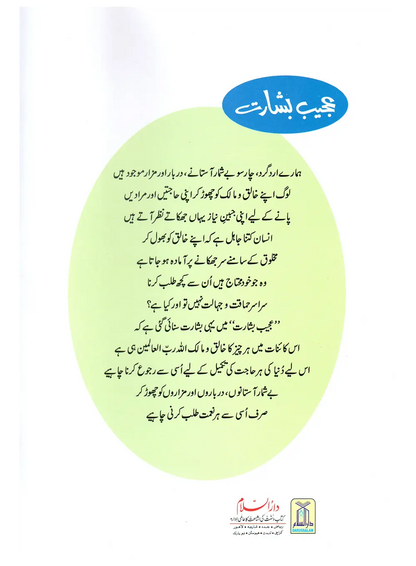 عجیب بشارت
ہمارے اردگرد، چار سو بے شمار آستانے، دربار اور مزار موجود ہیں
لوگ اپنے خالق و مالک کو چھوڑ کر اپنی حاجتیں اور مرادیں
پانے کے لیے اپنی جبینِ نیاز یہاں جھکاتے نظر آتے ہیں
انسان کتنا جاہل ہے کہ اپنے خالق کو بھول کر
مخلوق کے سامنے سر جھکانے پر آمادہ ہو جاتا ہے
وہ جو خود محتاج ہیں اُن سے کچھ طلب کرنا
سراسر حماقت و جہالت نہیں تو اور کیا ہے؟
”عجیب بشارت“ میں یہی بشارت سنائی گئی ہے کہ
اس کائنات میں ہر چیز کا خالق و مالک اللہ ربّ العالمین ہی ہے
اس لیے دُنیا کی ہر حاجت کی تکمیل کے لیے اُسی سے رجوع کرنا چاہیے
بے شمار آستانوں، درباروں اور مزاروں کو چھوڑ کر
صرف اُسی سے ہر نعمت طلب کرنی چاہیے
دارالسلام
کتاب و سنت کی اشاعت کا عالمی ادارہ
دارالسلام
DARUSSALAM